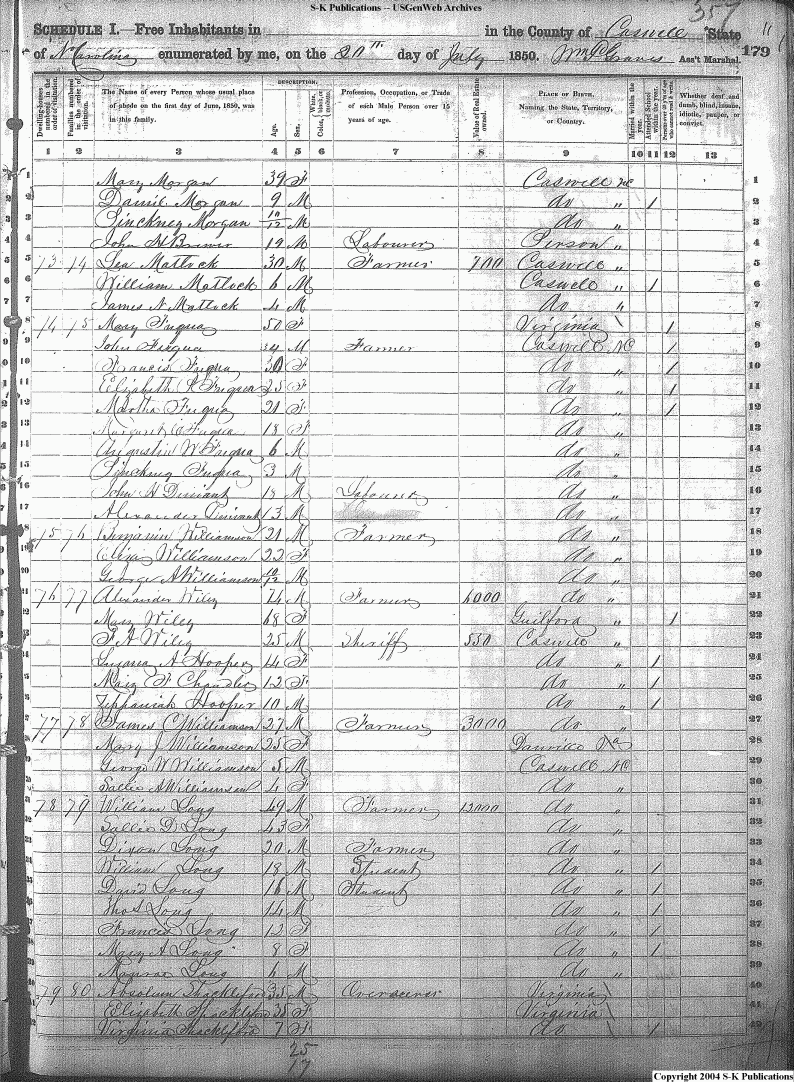 S-K Publications -- USGenWeb Archives
357
SCHEDULE I.—Free Inhabitants in in the County of Caswell State
of N Carolina enumerated by me, on the 20th day of July 1850. Wm Graves Ass't Marshal. 179
Dwelling-houses numbered in the order of visitation.
Families numbered in the order of visitation.
The Name of every Person whose usual place of abode on the first day of June, 1850, was in this family.
DESCRIPTION.
Age.
Sex.
White, black, or mulatto.
Color
Profession, Occupation, or Trade of each Male Person over 15 years of age.
Value of Real Estate owned.
PLACE OF BIRTH. Naming the State, Territory, or Country.
Married within the year.
Attended School within the year.
Persons over 20 y'rs of age who cannot read & write.
Whether deaf and dumb, blind, insane, idiotic, pauper, or convict.
1 2 3 4 5 6 7 8 9 10 11 12 13
1 Mary Morgan 39 F Caswell NC 1
2 Daniel Morgan 9 M do " / 2
3 Pinckney Morgan 10/12 M do " 3
4 John H Brewer 19 M Labourer Person " 4
5 73 74 Lea Matlock 30 M Farmer 700 Caswell " 5
6 William Matlock 6 M Caswell " / 6
7 James N Matlock 4 M do " 7
8 74 75 Mary Fuqua 50 F Virginia / 8
9 John Fuqua 34 M Farmer Caswell NC / 9
10 Francis Fuqua 30 F do " / 10
11 Elizabeth Fuqua 25 F do " / 11
12 Martha Fuqua 21 F do " / 12
13 Margaret Fuqua 18 F do " 13
14 Augustin W Fuqua 6 M do " 14
15 Pinckney Fuqua 3 M do " 15
16 John H 18 M Labourer do " 16
17 Alexander 13 M do " 17
18 75 76 Benjamin Williamson 21 M Farmer do " 18
19 Williamson 22 F do " 19
20 George A Williamson 10/12 M do " 20
21 76 77 Alexander Wiley 74 M Farmer 6000 do " 21
22 Mary Wiley 68 F Guilford " / 22
23 F A Wiley 25 M Sheriff 550 Caswell " 23
24 A Hooper 14 F do " / 24
25 Mary F Chandler 12 F do " / 25
26 Zeppaniah Hooper 10 M do " / 26
27 77 78 James C Williamson 27 M Farmer 3000 do " 27
28 Mary J Williamson 25 F Danville Va 28
29 George W Williamson 5 M Caswell NC 29
30 Sallie A Williamson 4 F do " 30
31 78 79 William Long 49 M Farmer 12000 do " 31
32 Sallie D Long 43 F do " 32
33 Dixon Long 20 M Farmer do " 33
34 William Long 18 M Student do " / 34
35 David Long 16 M Student do " / 35
36 Thos Long 14 M do " / 36
37 Francis Long 12 F do " / 37
38 Mary A Long 8 F do " / 38
39 Monroe Long 6 M do " 39
40 79 80 Absolum Shackleford 35 M Overseer Virginia 40
41 Elizabeth Shackleford 35 F Virginia 41
42 Virginia Shackleford 7 F do / 42
25
17
Copyright 2004 S-K Publications